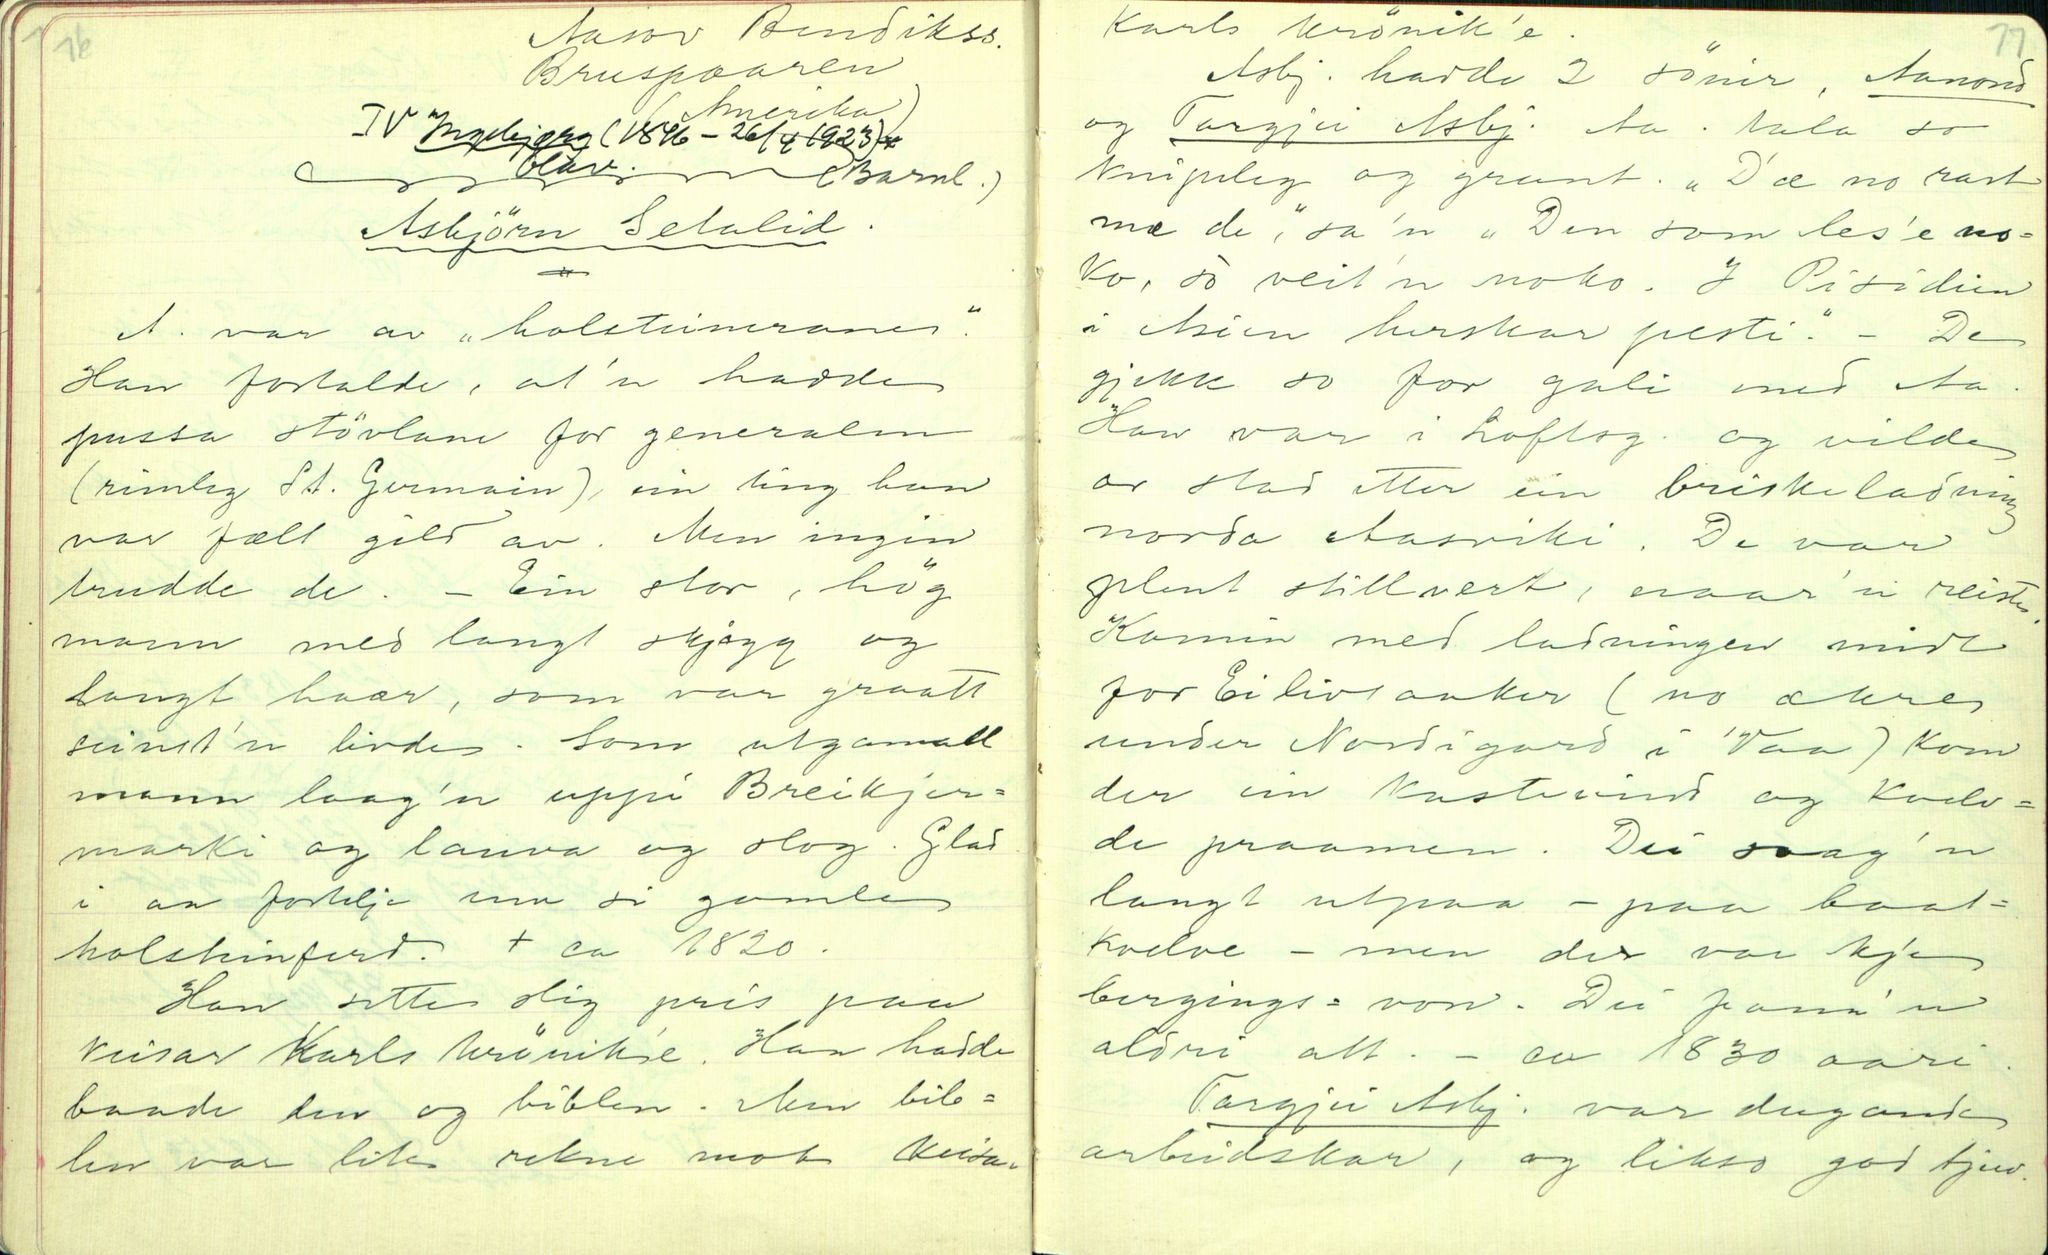 76
Aasov Bendikss.
Bruspaaren
(Amerika)
IV Ingebjørg (1846 – 26/4 1923) x
Olav.
(Barnl.)
Asbjörn Setalid.
A. var av „holsteinerane".
Han fortalde, at'n hadde
pussa stövlane for generalen
(rimleg St. Germain), ein ting han
var fælt gild av. Men ingin
trudde de. – Ein stor, hög
mann med langt skjegg og
langt haar, som var graatt
seinst'n livde. Som utgamall
mann laag'n uppi Breikjer=
marki og lauva og slog. Glad
i aa fortelje um si gamle
holsteinferd. + ca 1820.
Han sette slig pris paa
Keisar Karls krönik'e. Han hadde
baade den og biblen. Men bib=
len var lite rekne mot Keisar
77
Karls krönik'e.
Asbj. hadde 2 sönir, Aanond
og Targjei Asbj. Aa. tala so
knipeleg og grant. „D'æ no rart
mæ de," sa'n „Den som les'e no=
ko, so veit'n noko. I Pisidien
i Asien herskar pesti." – De
gjekk so for gali med Aa.
Han var i Loftsg. og vilde
av stad etter ein briskeladning
norda Aasviki. De var
plent stillvert, naar'n reiste.
Komin med ladningen midt
for Eilivsaaker (no ækre
under Nordigard i Vaa) kom
der ein kastevind og kvelv=
de praamen. Dei saag'n
langt utpaa – paa baat=
kvelve – men der var kje
bergings=von. Dei fann'n
aldri att. – ca 1830 aari.
Targjei Asbj. var dugande
arbeidskar, og likso god tjuv.